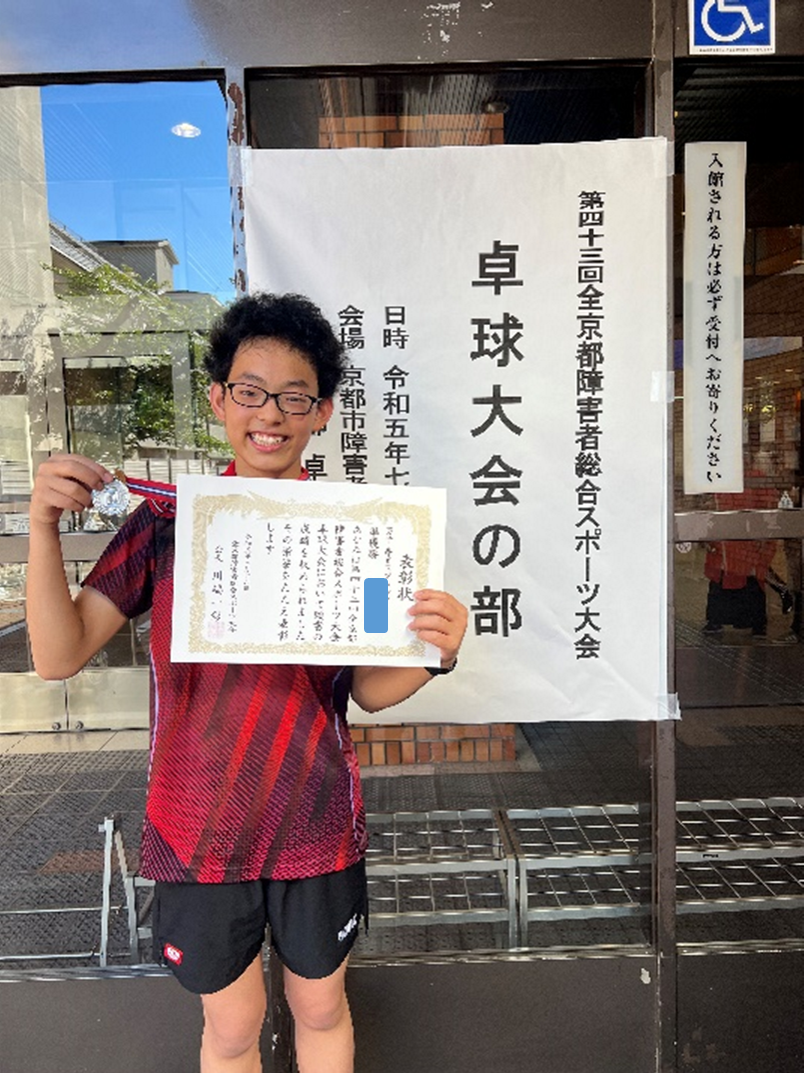 入館される方は必ず受付へお寄りください
第四十三回全京都障害者総合スポーツ大会
卓球大会の部
日時 令和五年七
会場 京都市障害者
卓
表彰状
準優勝
あなたは第四十三回全京都
障害者総合スポーツ大会
卓球大会において頭書の
成績を収められました
その栄誉をたたえ表彰
します